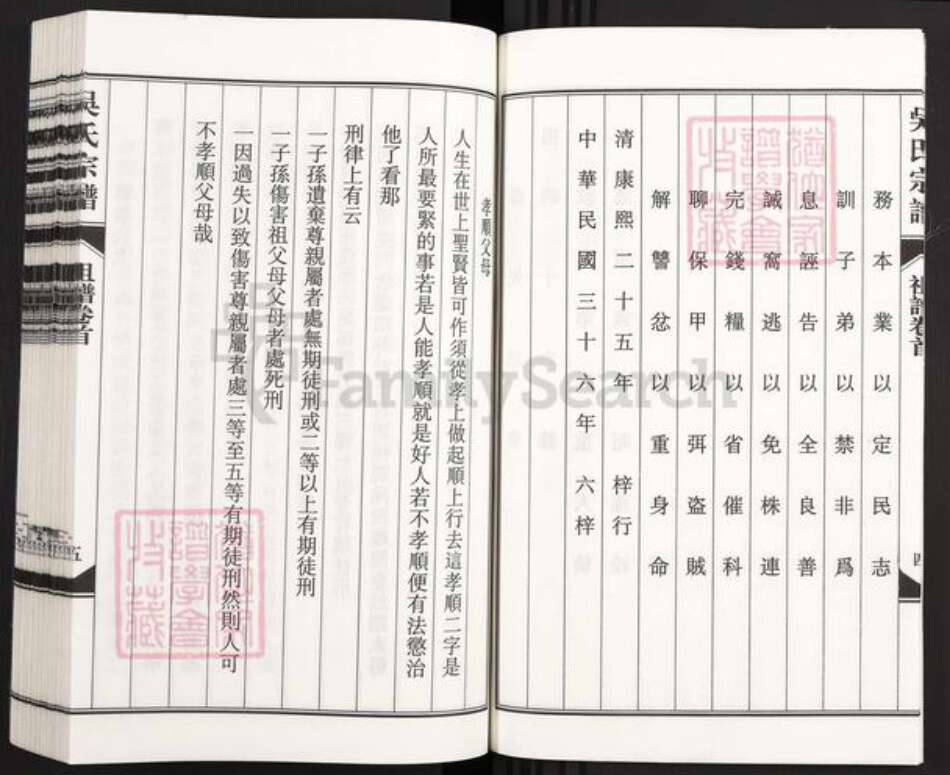 吳氏宗譜
祖譜卷首
四
務本業以定民志
訓子弟以禁非爲
息誣告以全良善
誡窩逃以免株連
完錢糧以省催科
聊保甲以弭盜賊
解讐忿以重身命
清康熙二十五年 梓行
中華民國三十六年六梓
孝順父母
人生在世上聖賢皆可作須從孝上做起順上行去這孝順二字是
人所最要緊的事若是人能孝順就是好人若不孝順便有法懲治
他了看那
刑律上有云
一子孫遺棄尊親屬者處無期徒刑或二等以上有期徒刑
一子孫傷害祖父母父母者處死刑
一因過失以致傷害尊親屬者處三等至五等有期徒刑然則人可
不孝順父母哉
吳氏宗譜
祖譜卷首
五
FamilySearch